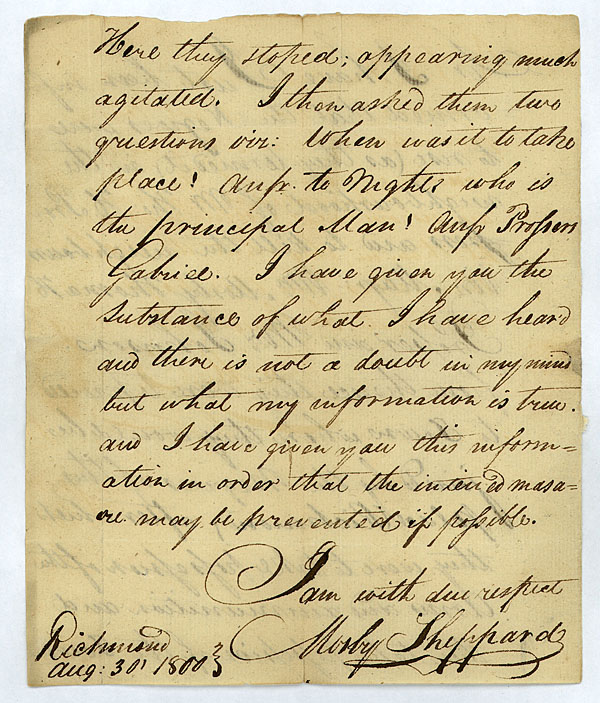 Here they stoped; appearing much
agitated. I then asked them two
questions viz: When was it to take
place! Ansr. to Nights who is
the principal Man! Ansr Prossers
Gabriel. I have given you the
substance of what I have heard
and there is not a doubt in my mind
but what my information is true.
and I have given you this inform=
ation in order that the intended masa=
cre may be prevented if possible.
I am with due respect
Mosby Sheppard
Richmond
Aug: 30' 1800